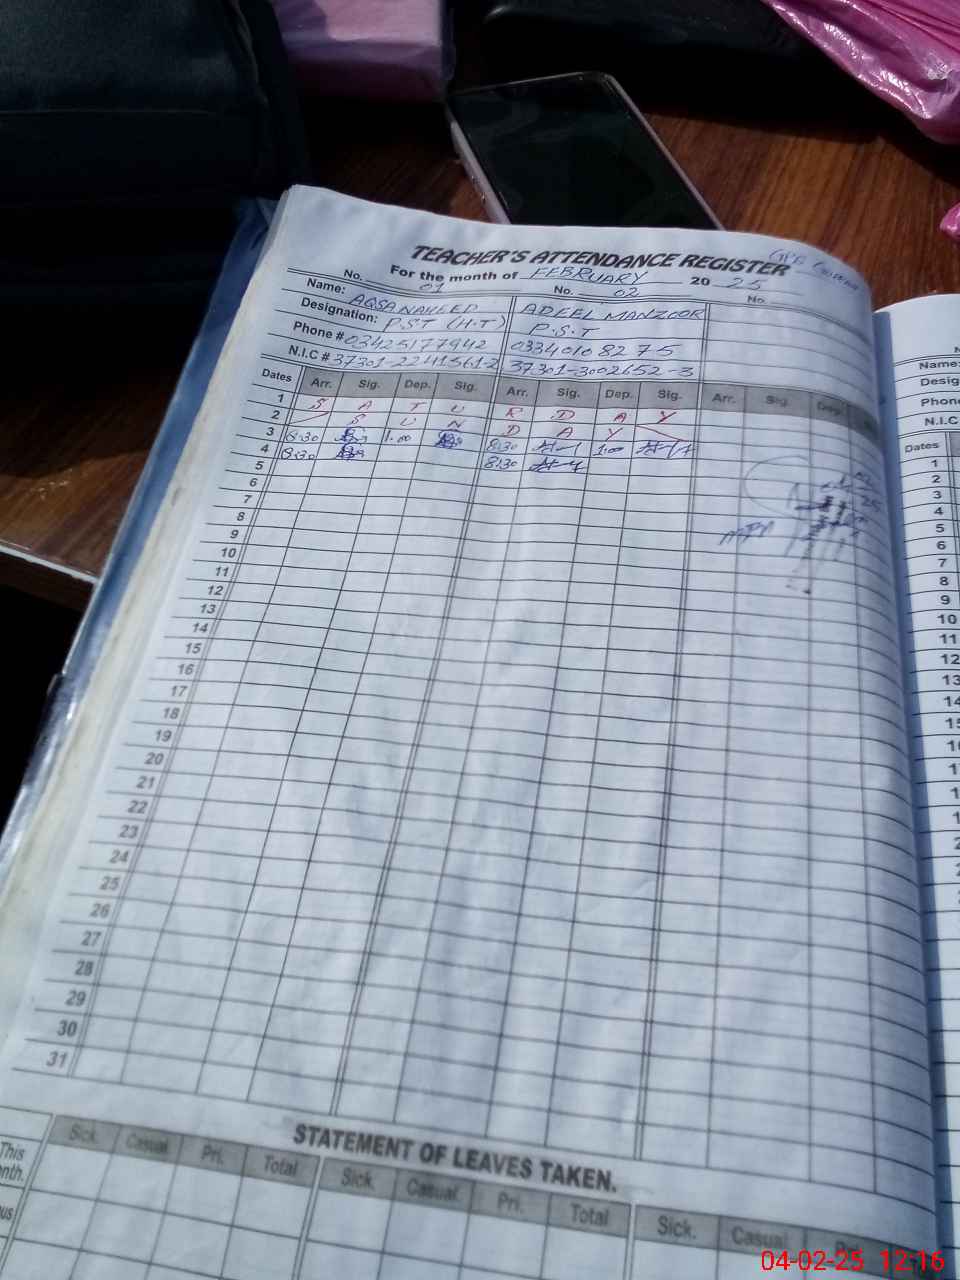 TEACHER'S ATTENDANCE REGISTER
For the month of FEBRUARY 2025
No. 01 No. 02 No.
Name: AQSA NAHEED ADEEL MANZOOR
Designation: P.S.T (H.T) P.S.T
Phone # 03425177942 0334010 82 75
N.I.C # 37301-2241561-2 37301-3002652-3
Dates Arr. Sig. Dep. Sig. Arr. Sig. Dep. Sig. Arr. Sig. Dep.
1 S A T U R D A Y
2 S U N D A Y
3 8:30 1.00 8:30 1:00
4 8:30 8:30
5
6
7
8
9
10
11
12
13
14
15
16
17
18
19
20
21
22
23
24
25
26
27
28
29
30
31
STATEMENT OF LEAVES TAKEN.
Sick. Casual. Pri. Total Sick. Casual. Pri. Total Sick. Casual.
This
Name:
Desig
Phon
N.I.C
Dates
1
2
3
4
5
6
7
8
9
10
11
12
13
04-02-25 12:16